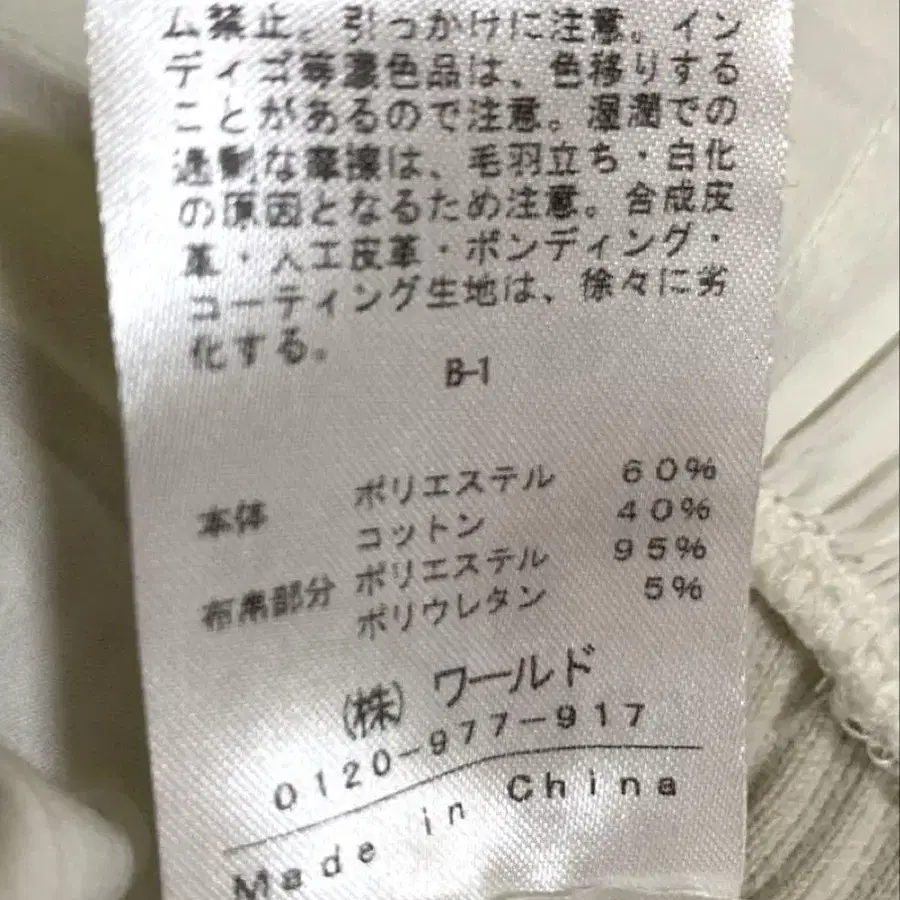 ム禁止。引っかけに注意。イン
ディゴ等濃色品は、色移りする
ことがあるので注意。湿潤での
過剰な摩擦は、毛羽立ち・白化
の原因となるため注意。合成皮
革・人工皮革・ボンディング・
コーティング生地は、徐々に劣
化する。
B-1
本体 ポリエステル 60%
コットン 40%
布帛部分 ポリエステル 95%
ポリウレタン 5%
(株)ワールド
0120-977-917
Made in China